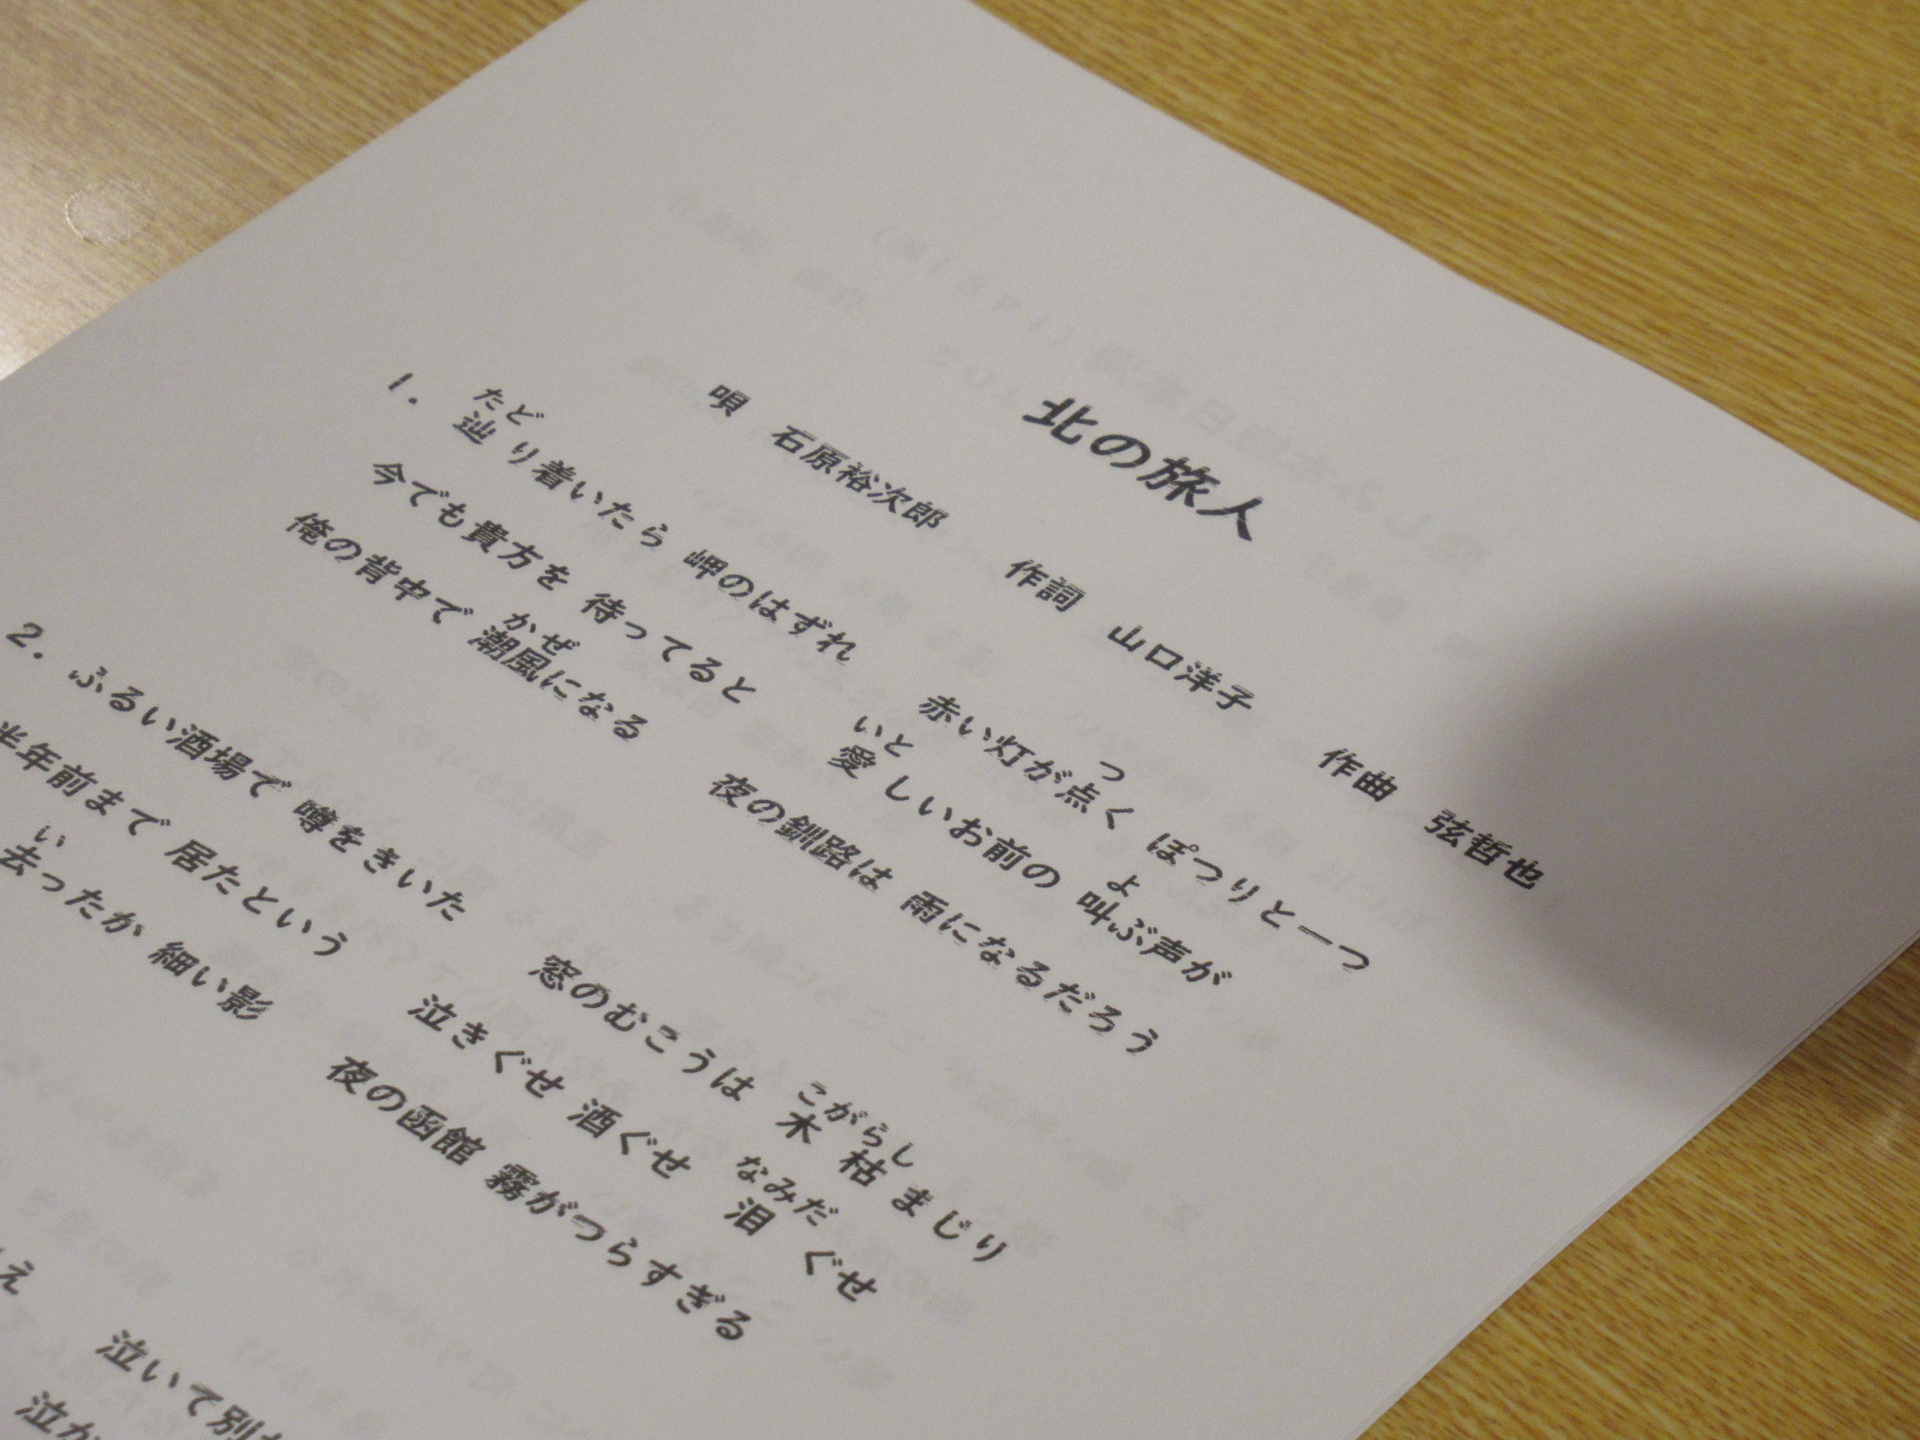 北の旅人
唄 石原裕次郎 作詞 山口洋子 作曲 弦哲也
1. 辿り着いたら 岬のはずれ 赤い灯が点く ぽつりと一つ
たど つ
今でも貴方を 待ってると 愛しいお前の 叫ぶ声が
いと よ
俺の背中で 潮風になる 夜の釧路は 雨になるだろう
かぜ
2. ふるい酒場で 噂をきいた 窓のむこうは 木枯まじり
こがらし
半年前まで 居たという 泣きぐせ 酒ぐせ 泪ぐせ
なみだ
去ったか 細い影 夜の函館 霧がつらすぎる
い
え 泣いて別
泣か